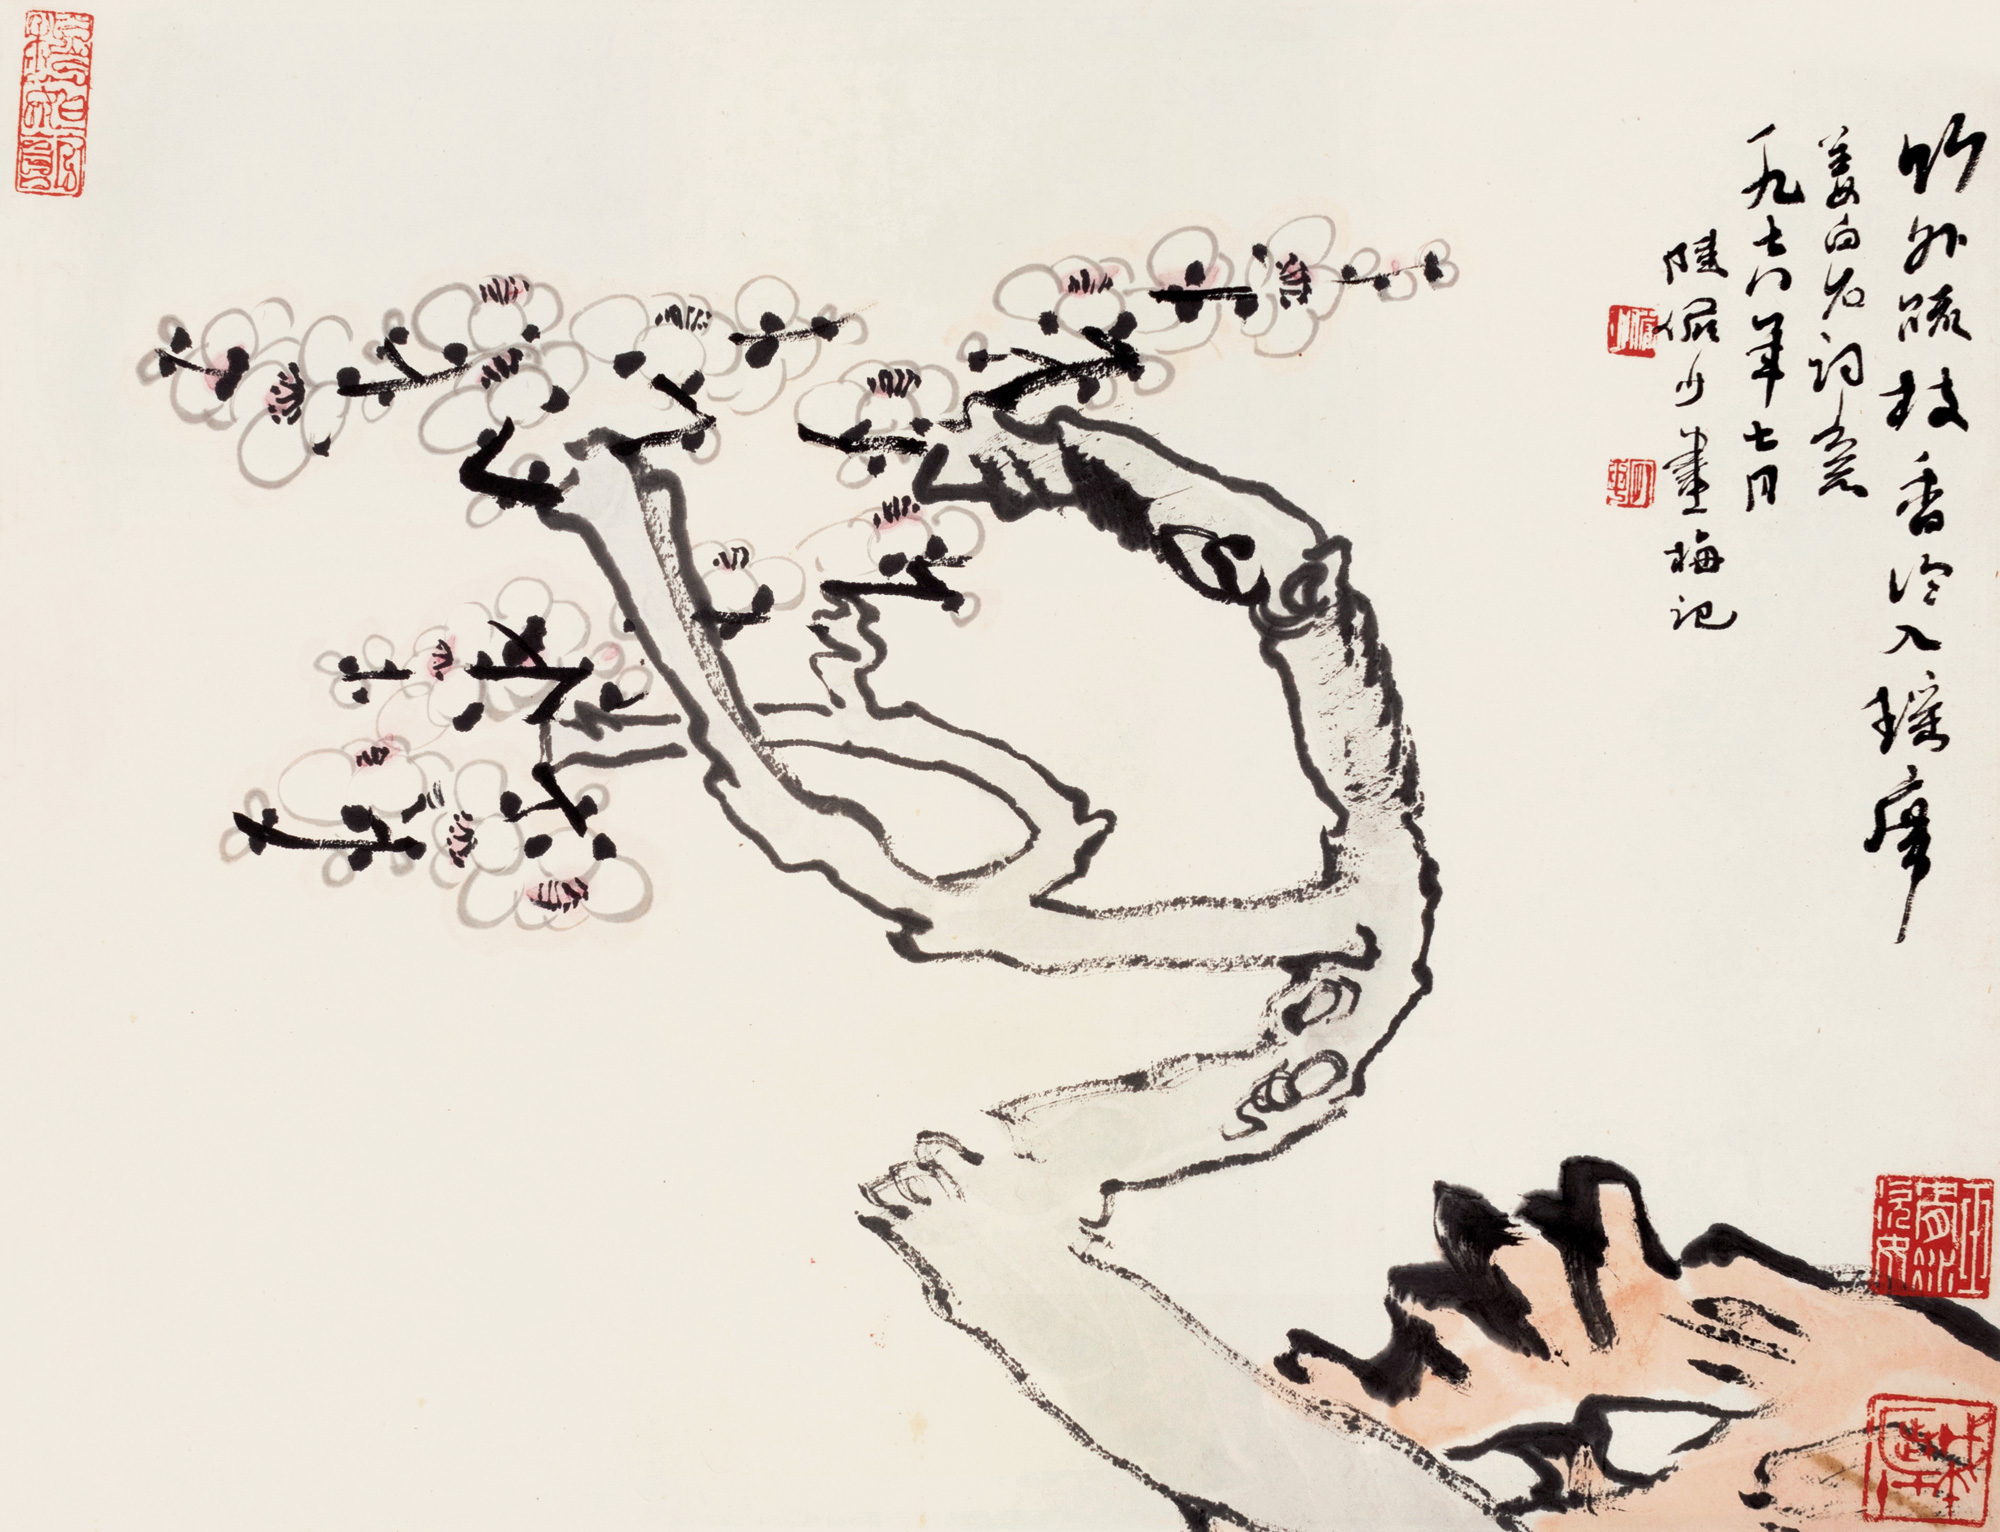 竹外疏枝香冷入瑶席
姜白石词意
一九七八年七月
陆俨少画梅记